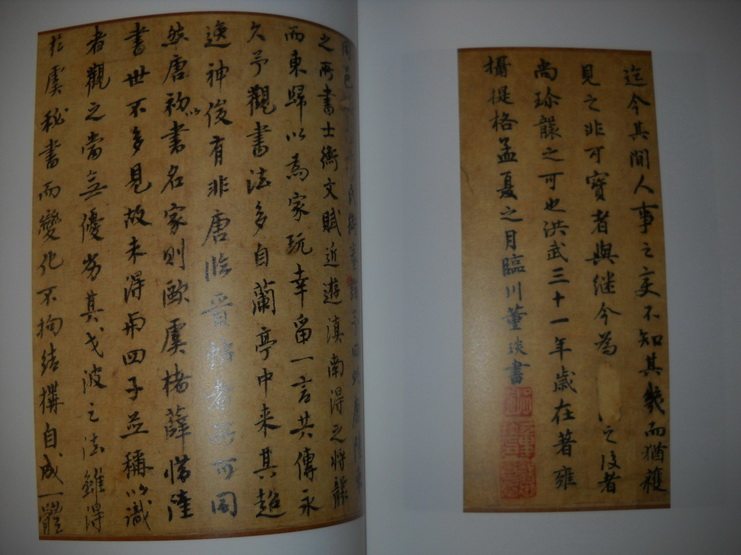 迄今其間人事之变不知其幾而猶獲
見之非可寶者與继今為之後者
尚珎襲之可也洪武三十一年歲在著雍
攝提格孟夏之月臨川董琰書
之所書士衡文賦近遊滇南得之将襲
而東歸以為家玩幸留一言共傳永
久予觀書法多自蘭亭中来其超
逸神俊有非唐臨晉帖者所可同
然唐初以書名家則歐虞褚薛惜陸
書世不多見故未得与四子並稱以識
者觀之當无優劣其戈波之法雖得
於虞秘書而變化不拘結撰自成一體